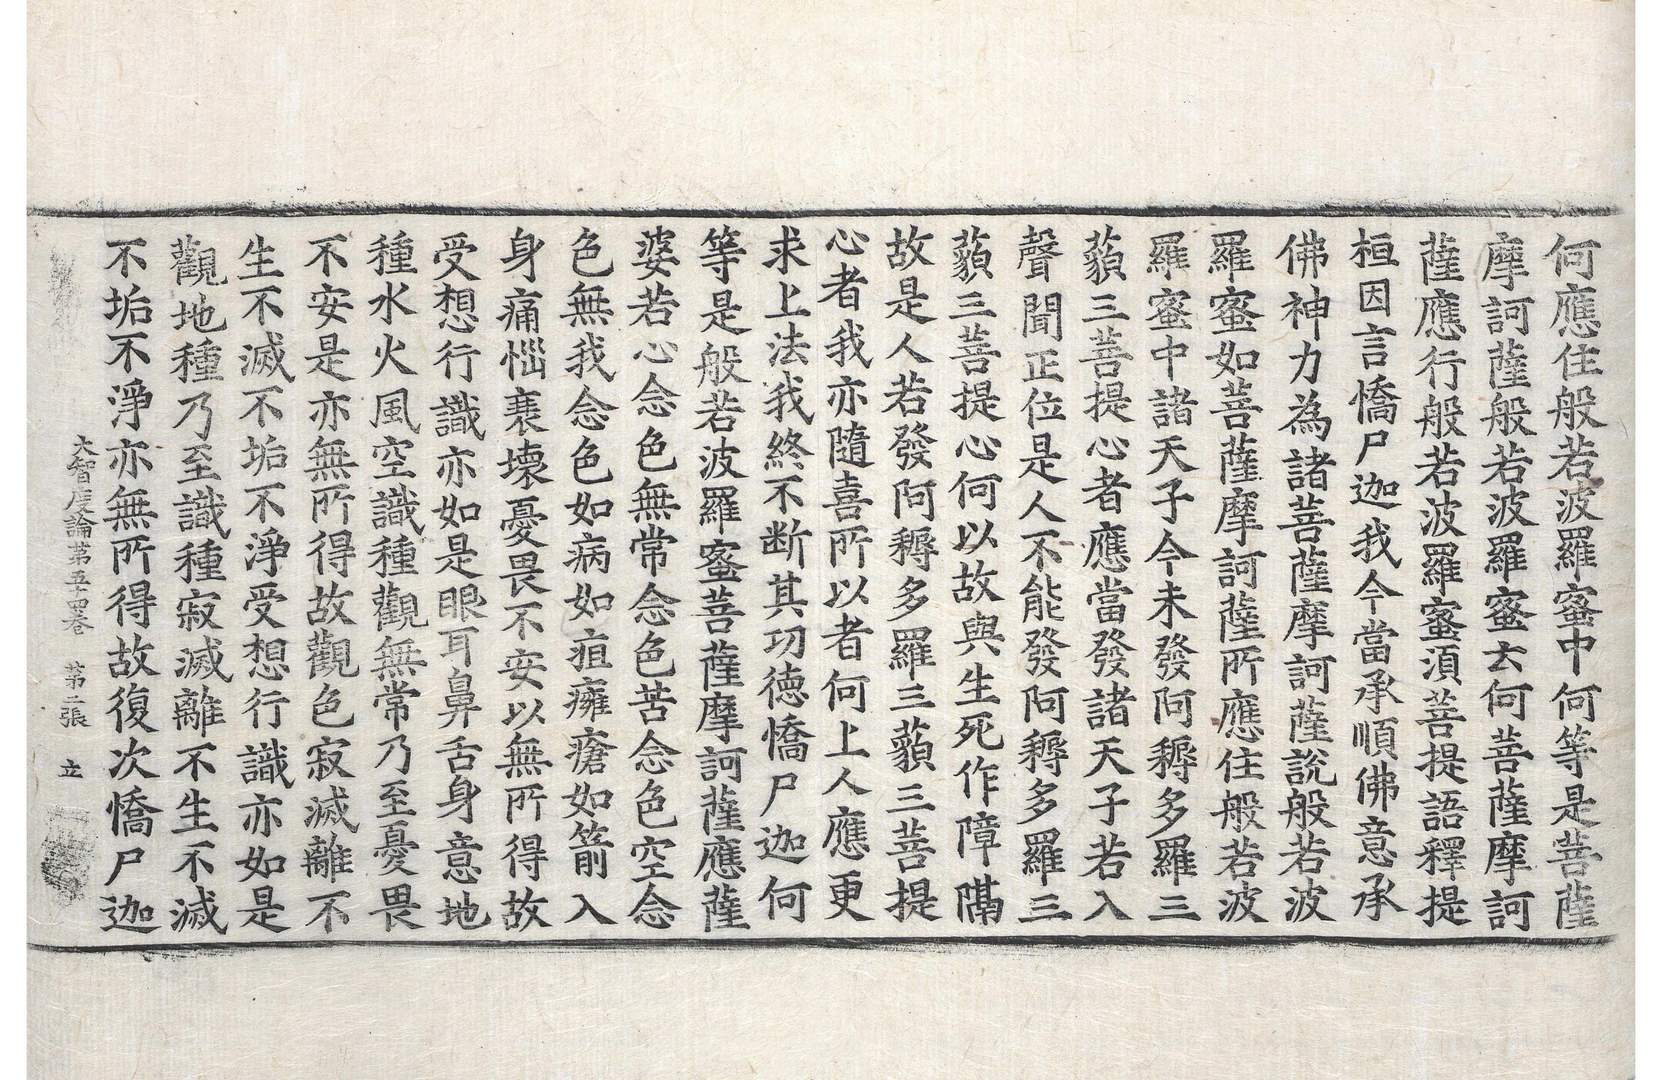 何應住般若波羅蜜中何等是菩薩
摩訶薩般若波羅蜜云何菩薩摩訶
薩應行般若波羅蜜須菩提語釋提
桓因言憍尸迦我今當承順佛意承
佛神力為諸菩薩摩訶薩說般若波
羅蜜如菩薩摩訶薩所應住般若波
羅蜜中諸天子今未發阿耨多羅三
藐三菩提心者應當發諸天子若入
聲聞正位是人不能發阿耨多羅三
藐三菩提心何以故與生死作障隔
故是人若發阿耨多羅三藐三菩提
心者我亦隨喜所以者何上人應更
求上法我終不断其功德憍尸迦何
等是般若波羅蜜菩薩摩訶薩應薩
婆若心念色無常念色苦念色空念
色無我念色如病如疽癰瘡如箭入
身痛惱衰壞憂畏不安以無所得故
受想行識亦如是眼耳鼻舌身意地
種水火風空識種觀無常乃至憂畏
不安是亦無所得故觀色寂滅離不
生不滅不垢不淨受想行識亦如是
觀地種乃至識種寂滅離不生不滅
不垢不淨亦無所得故復次憍尸迦
大智度論第五十四卷 第二張 立